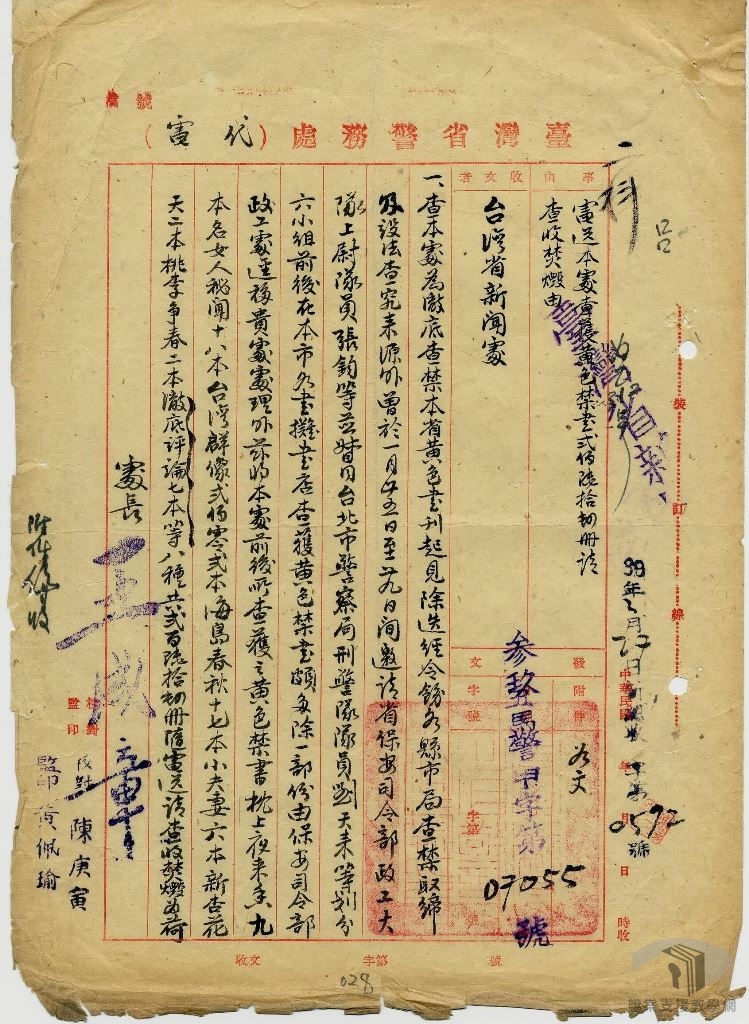 臺灣省警務處（代電）
二科
事由
電送本處查獲黃色禁書弍佰陸拾切册請
查收焚燬由
收文者
台灣省新聞處
一、查本處為澈底查禁本省黃色書刊起見除迭經令飭各縣市局查禁取締
及設法查究来源外曾於一月廿五日至廿九日間邀請省保安司令部政工大
隊上尉隊員張鈞等並督同台北市警察局刑警隊隊員劉天来等劃分
六小組前後在本市各書攤書店查獲黃色禁書頗多除一部份由保安司令部
政工處逕移貴處處理外茲將本處前後所查獲之黃色禁書枕上夜来香九
本名女人秘聞十八本台灣群像弍佰零弍本海島春秋十七本小夫妻六本新杏花
天二本桃李争春二本澈底評論七本等八種共弍百陸拾切册隨電送請查收焚燬為荷
處長 王成章
附件
校對 陳庚寅
監印 黃佩瑜
發文
附件
如文
字號
参玖
警甲字第
07055
號
中華民國 年 月 日 時收
39年2月
0592
號
裝訂線
收文 字第 號
028